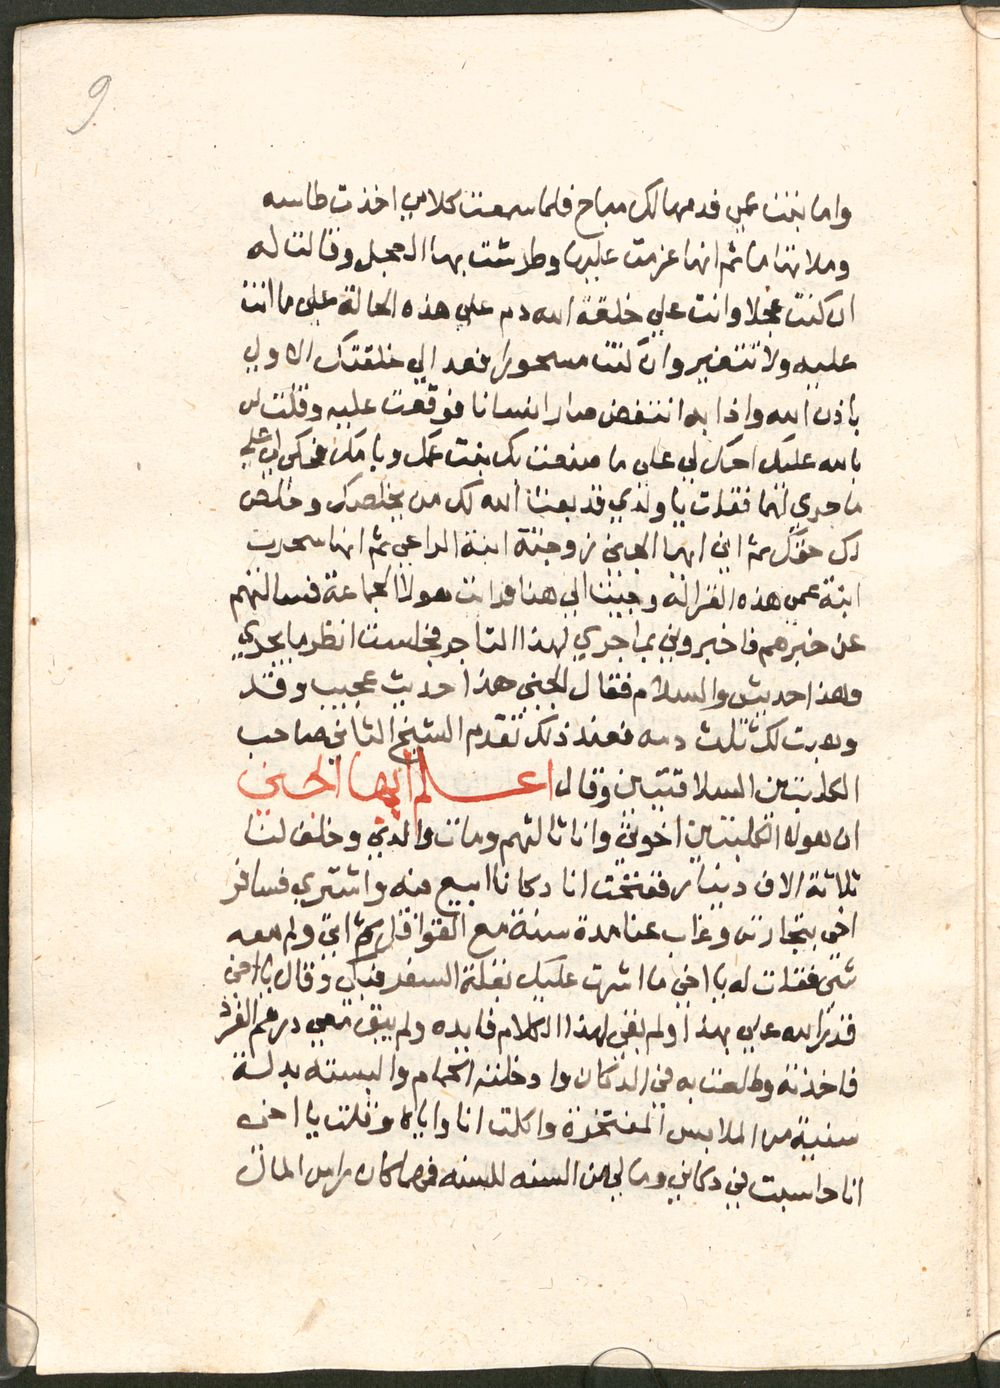 9
واما بنت عمي فدمها لك مباح فلما سمعت كلامي اخذت طاسه
وملاتها ما ثم انها عزمت عليها وطرشت بها العجل وقالت له
ان كنت عجلا وانت علي خلقة الله دم علي هذه الحالة علي ما انت
عليه ولا تتغير وان كنت مسحورا فعد الي خلقتك الاولي
باذن الله واذا به انتفض صار انسانا فوقعت عليه وقلت له
بالله عليك احك لي علي ما صنعت بك بنت عمك وبامك فحكي لي علي
ما جري لهما فقلت يا ولدي قد بعث الله لك من يخلصك وخلص
لك حقك ثم اني ايها الجني زوجته ابنة الراعي ثم انها سحرت
ابنة عمي هذه الغزالة وجيت الي هنا فرايت هولا الجماعة فسالتهم
عن خبرهم فاخبروني بما جري لهذا التاجر فجلست انظر ما يجري
وهذا حديثي والسلام فقال الجني هذا حديث عجيب وقد
وهبت لك ثلث دمه فعند ذلك تقدم الشيخ الثاني صاحب
الكلبتين السلاقتين وقال اعلم ايها الجني
ان هوله الكلبتين اخوتي وانا ثالثهم ومات والدي وخلف لنا
ثلاثة الاف دينار ففتحت انا دكانا ابيع فيه واشتري فسافر
اخي بتجارته وغاب عنا مدة سنة مع القوافل ثم اتي ولم معه
شي فقلت له يا اخي ما اشرت عليك بقلة السفر فبكي وقال يا اخي
قدر الله علي بهذا ولم بقي لهذا الكلام فايده ولم يبق معي درهم الفرد
فاخذته وطلعت به في الدكان وادخلته الحمام والبسته بدلة
سنية من الملابس المفتخرة واكلت انا واياه وقلت يا اخي
انا حاسبت في دكاني ومالي من السنه للسنه فمهما كان راس المال